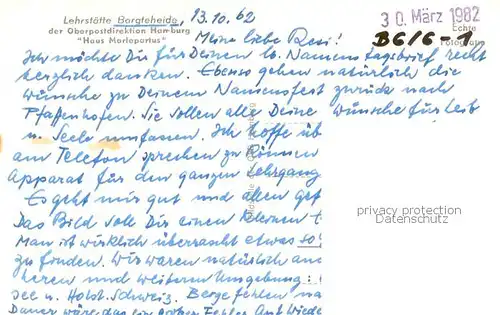 Lehrstätte Bargteheide, 13.10.62
der Oberpostdirektion Hamburg
"Haus Marlepartus"
30. März 1982
Echte
Fotografie
B6/6-11
Meine liebe Resi!
Ich möchte Dir für Deinen lb. Namenstagbrief recht
herzlich danken. Ebenso gehen natürlich die
Wünsche zu Deinem Namensfest zurück nach
Pfaffenhofen. Sie sollen alle Deine Wünsche für Leib
u. Seele umfassen. Ich hoffe üb
am Telefon sprechen zu können
Apparat für den ganzen Lehrgang
Es geht mir gut und allen gef
Das Bild soll Dir einen kleinen
Man ist wirklich überrascht etwas so
zu finden. Wir waren natürlich auc
heren und weiteren Umgebung:
see u. Holst. Schweiz. Berge fehlen na
Dauer wäre das ein großer Fehler. Auf Wiede
privacy protection
Datenschutz